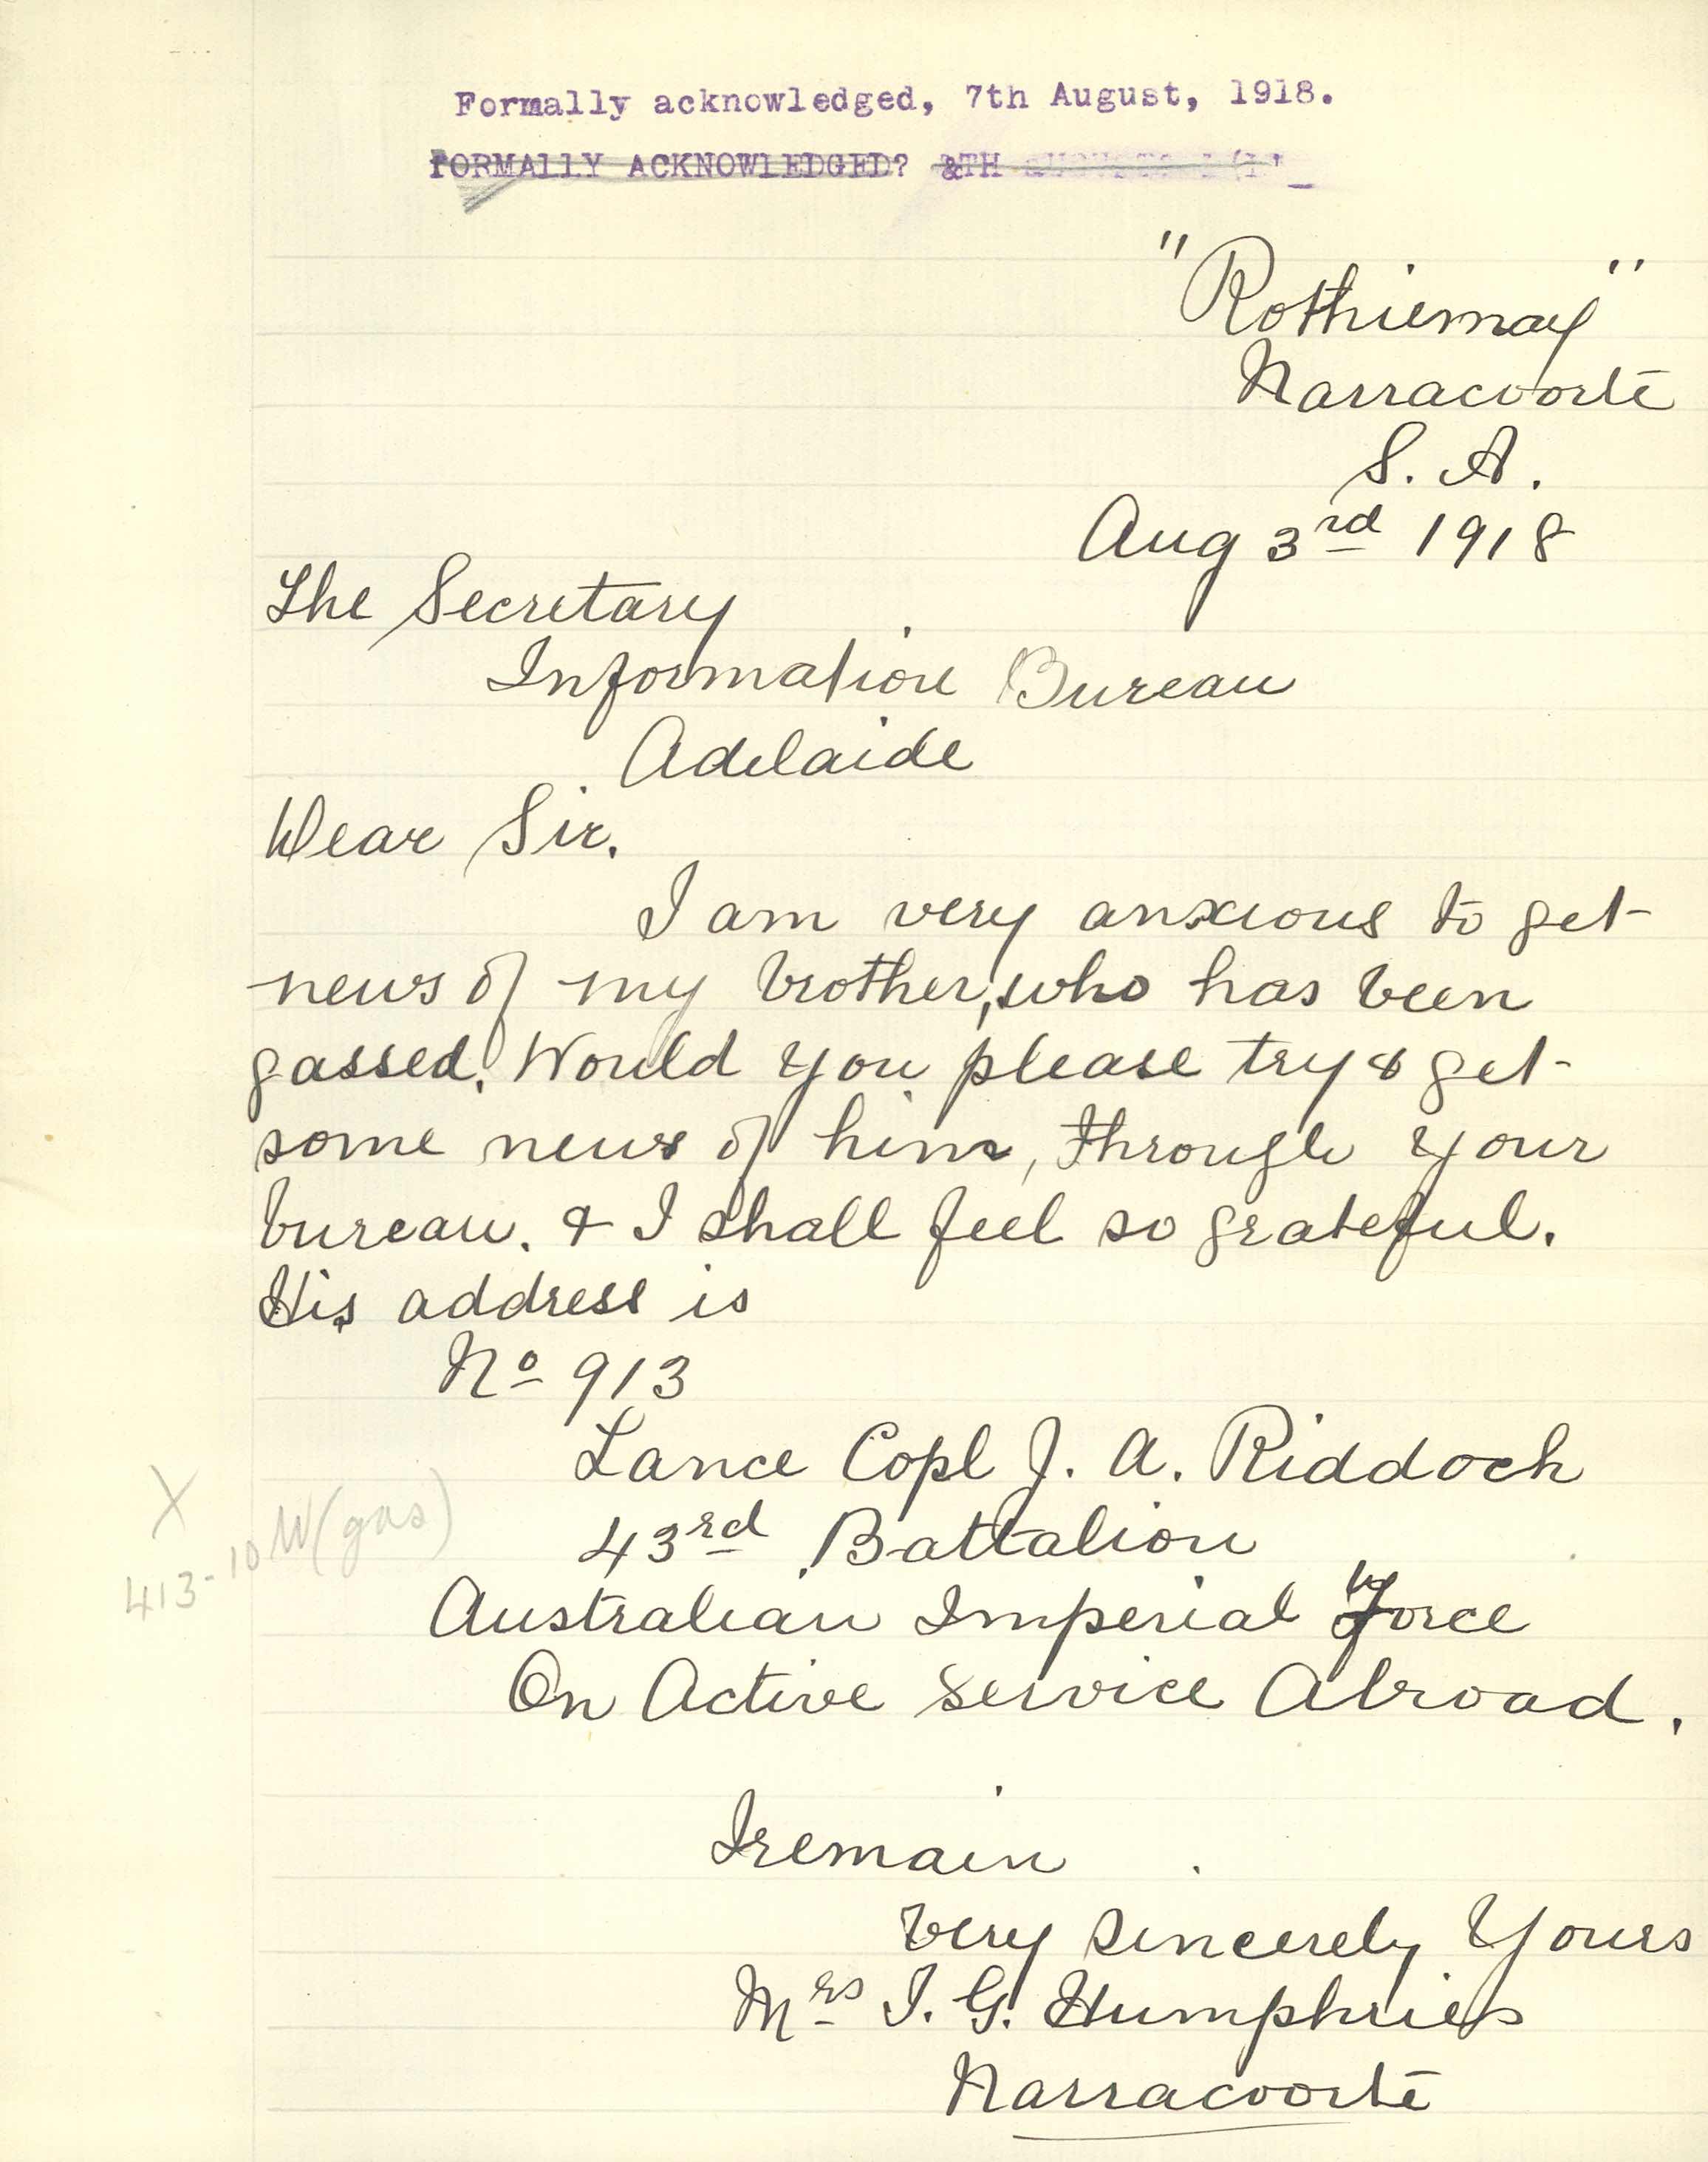 Formally acknowledged, 7th August, 1918.
FORMALLY ACKNOWLEDGED? &TH
"Rothiemay"
Narracoorte
S. A.
Aug 3rd 1918
The Secretary
Information Bureau
Adelaide
Dear Sir.
I am very anxious to get
news of my brother, who has been
gassed. Would you please try & get
some news of him, through your
bureau. & I shall feel so grateful.
His address is
No 913
Lance Copl J. A. Riddoch
43rd Battalion
X
413-10 W(gas)
Australian Imperial Force
On Active Service Abroad.
I remain
Very Sincerely Yours
Mrs I. G. Humphries
Narracoorte